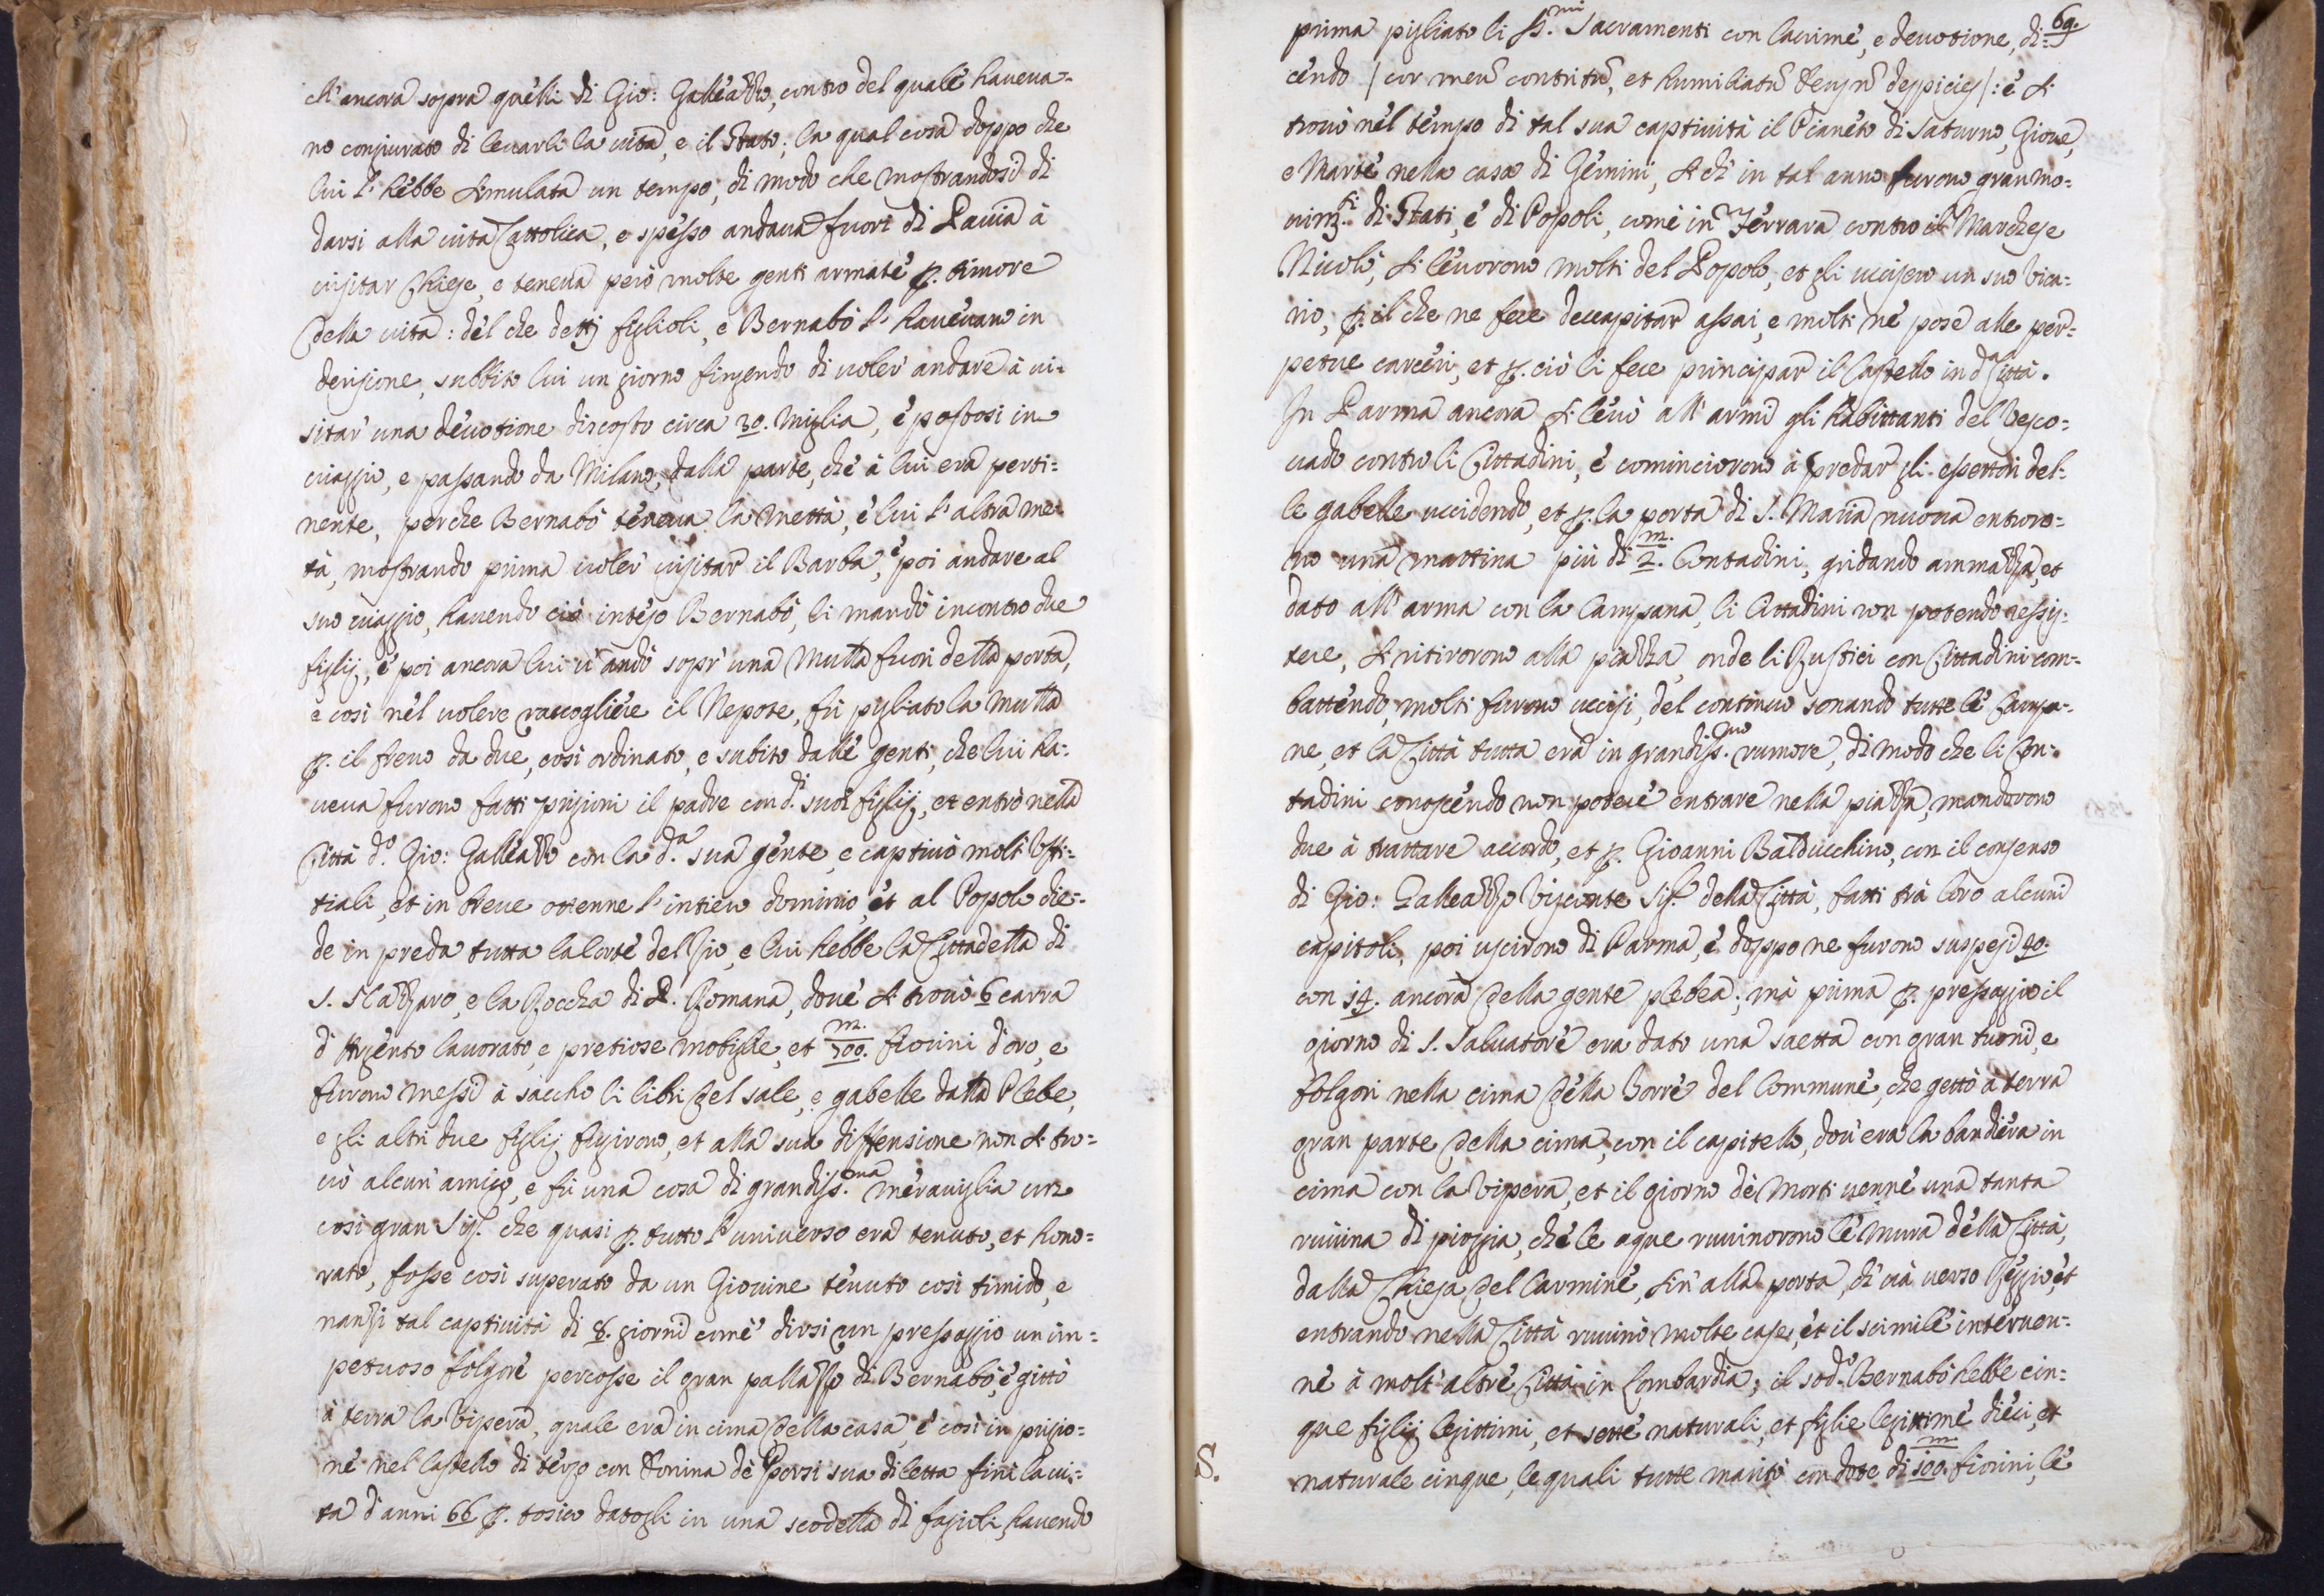 ch'ancora sopra quelli di Gio: Galleazzo, contro del quale haueua=
no conjiurato di leuarli la uita, e il Stato; la qual cosa doppo che
lui l'hebbe simulata un tempo, di modo che mostrandosi di
darsi alla uita Cattolica, e spesso andaua fuori di Pauia à
uisitar Chiese, e teneua però molte genti armate p. timore
della uita: del che detti figlioli, e Bernabò l'haueuano in
derisione, subbito lui un giorno fingendo di uoler andare à ui=
sitar una deuotione discosto circa 30. Miglia, è postosi in
uiaggio, e passando da Milano, dalla parte, che à lui era perti=
nente, perche Bernabò teneua la mettà, è lui l'altra me=
tà, mostrando prima uoler uisitar il Barba, è poi andare al
suo uiaggio, hauendo ciò inteso Bernabò, li mandò incontro due
figlij, è poi ancora lui u'andò sopr'una Mulla fuori della porta,
e così nel uolere raccogliere il Nepote, fù pigliato la mulla
p. il freno da due, così ordinato, e subito dalle genti, che lui ha=
ueua furono fatti prigioni il padre con d.i suoi figlij, et entrò nella
Città d.o Gio: Galleazzo con la d.a sua gente, e captiuò molti Uffi=
tiali, et in breue ottenne l'intiero dominio, et al Popolo die=
de in preda tutta la Corte del Zio, e lui hebbe la Cittadella di
S. Nazzaro, e la Roccha di P. Romana, doue si trouò 6 carra
d'Argento lauorato, e pretiose mobiglie, et 700.m fiorini d'oro, e
furono messi à saccho li libri del sale, e gabelle dalla Plebe,
e gli altri due figlij fugirono, et alla sua diffensione non si tro=
uò alcun'amico, e fù una cosa di grandiss.ma merauiglia un
così gran Sig.r che quasi p. tutto l'uniuerso era tenuto, et hono=
rato, fosse così superato da un Giouine tenuto così timido, e
nanzi tal captiuità di 8. giorni come dirsi un pressaggio un im=
petuoso folgore percosse il gran pallazzo di Bernabò, è gittò
à terra la Vipera, quale era in cima della casa, è così in prigio=
ne nel Castello di terzo con Donina de Porsi sua diletta finì la ui=
ta d'anni 66 p. tosico datogli in una scodella di fagioli, hauendo
69.
prima pigliato li SS.mi Sacramenti con lacrime, e deuotione, di=
cendo / cor meũ contritũ, et humiliatũ Deus ñ despicies /: è si
trouò nel tempo di tal sua captiuità il Pianeto di Saturno, Gioue,
e Marte nella casa di Gemini, si chè in tal anno furono gran mo=
uim.ti di Stati, è di Popoli, come in Ferrara contro il Marchese
Nicolò, si leuorono molti del Popolo, et gli uccisero un suo Vica=
rio, p. il che ne fece deccapitar assai, e molti ne pose alle per=
petue carceri, et p. ciò li fece principiar il Castello in d.a Città.
In Parma ancora si leuò all'armi gli habittanti del Vesco=
uado contro li Cittadini, è cominciorono à predar gli essettori del=
le gabelle uccidendo, et p. la porta di S. Maria nuoua entroro=
no una mattina più di 2.m Contadini, gridando ammazza, et
dato all'arma con la Campana, li Cittadini non potendo ressis=
tere, si ritirorono alla piazza, onde li Rustici con Cittadini com=
battendo, molti furono uccisi, del continuo sonando tutte le Campa=
ne, et la Città tutta era in grandiss.mo rumore, di modo che li Con=
tadini conoscendo non potere entrare nella piazza, mandorono
due à trattare accordo, et p. Gioanni Balducchino, con il consenso
di Gio: Galleazzo Visconte Sig.r della Città, fatti trà loro alcuni
capitoli, poi uscirono di Parma, è doppo ne furono suspesi 40.
con 14. ancora della gente plebea; mà prima p. pressaggio il
giorno di S. Saluatore era dato una saetta con gran tuoni, e
folgori nella cima della Torre del Commune, che gettò à terra
gran parte della cima, con il capitello, dou'era la bandiera in
cima con la Vipera, et il giorno de Morti uenne una tanta
ruuina di pioggia, che le aque ruuinorono le Mura della Città,
dalla Chiesa del Carmine, sin'alla porta, di uà uerso Reggio, et
entrando nella Città ruuinò molte case, et il scimile interuen=
ne à molt'altre Città in Lombardia; il sod.o Bernabò hebbe cin=
que figlij legittimi, et sette naturali, et figlie legittime dieci, et
naturale cinque, le quali tutte maritò con dote di 100.m fiorini, le
S.